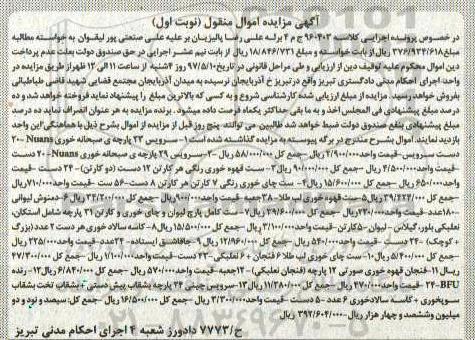 آگهی مزایده اموال منقول (نوبت اول)
در خصوص پرونده اجرایی کلاسه ۹۶۰۴۰۳ ج م ۴ برله علی رضا پالیزبان بر علیه علی صنعتی پور لیقوان به خواسته مطالبه
مبلغ ۳۷۶/۹۳۴/۶۱۸ ریال از بابت خواسته و مبلغ ۱۸/۸۴۶/۷۳۱ ریال از بابت نیم عشر اجرایی در حق صندوق دولت بعلت عدم پرداخت
دین اموال محکوم علیه توقیف دین از ارزیابی و طی مراحل قانونی در تاریخ ۹۷/۵/۱۰ روز ۴شنبه از ساعت ۱۱ الی ۱۲ ظهر از طریق مزایده در
واحد اجرای احکام مدنی دادگستری تبریز واقع در تبریز خ آذربایجان نرسیده به میدان آذربایجان مجتمع قضایی شهید قاضی طباطبائی
بفروش خواهد رسید. مزایده از مبلغ ارزیابی شده کارشناسی شروع و به کسی که بالاترین مبلغ را پیشنهاد نماید فروخته خواهد شد و ده
درصد مبلغ پیشنهادی فی المجلس اخذ و به ما بقی حداکثر یکماه فرصت داده میشود. برنده مزایده به هر عنوان انصراف نماید ده درصد
مبلغ پیشنهادی بنفع صندوق دولت ضبط خواهد شد طالبین می توانند پنج روز قبل از مزایده از اموال بشرح ذیل با هماهنگی این واحد
بازدید نمایند. اموال بشرح مندرج در برگه پیوست به مزایده گذاشته شده است ۱-سرویس ۲۳ پارچه ی صبحانه خوری Nuans ۲۰
دست سرویس -قیمت واحد ۲/۹۰۰/۰۰۰ ریال -جمع کل ۵۸/۰۰۰/۰۰۰ ریال ۲-سرویس ۲۹ پارچه ی صبحانه خوری Nuans-۲۰ دست
-قیمت واحد ۴/۵۰۰/۰۰۰ ریال -جمع کل ۹۰/۰۰۰/۰۰۰ ریال ۳-ست قهوه خوری رنگی هر کارتن ۱۲ دست (دو کارتن)-۲۴ دست -قیمت
واحد ۶۵۰/۰۰۰ ریال -جمع کل ۱۵/۶۰۰/۰۰۰ ریال ۴-ست چای خوری رنگی ۷ کارتن هر کارتن ۸ دست-۵۶ ست -قیمت واحد ۷۱۰/۰۰۰ ریال
-جمع کل ریال ۵-ست قهوه خوری لب طلا ۳۸ دست -قیمت واحد ۹۰۰/۰۰۰ ریال -جمع کل ۳۴/۲۰۰/۰۰۰ ریال ۶-دمنوش لیوانی
۱۸۰ عدد-قیمت واحد ۲۲۰/۰۰۰ ریال -جمع کل ۳۹/۶۰۰/۰۰۰ ریال ۷-ست کامل پارچ لیوان و چای خوری و کارتن ۳۱ پارچه شامل استکان،
نعلبکی بلور، گیلاس - لیوان ۵۰ کارتن-قیمت واحد ۳/۱۰۰/۰۰۰ ریال -جمع کل ۱۵/۵۰۰/۰۰۰ ریال ۸-کاسه سالاد خوری هر دست ۲ عدد (بزرگ
+ کوچک) ۲۴۰ دست -قیمت واحد ۵۴۰/۰۰۰ ریال -جمع کل ۱۲/۹۶۰/۰۰۰ ریال ۹-جاقاشق ایستاده -۲۴ عدد-قیمت واحد ۲۲۵/۰۰۰ ریال
-جمع کل ۵/۴۰۰/۰۰۰ ریال ۱۰-ست چای خوری لب طلا ۶ فنجان + ۶ نعلبکی ۴۳۰ دست-قیمت واحد ۱/۱۰۰/۰۰۰ ریال -جمع کل ۴۷/۳۰۰/۰۰۰
ریال ۱۱-فنجان قهوه خوری صورتی ۱۲ پارچه (فنجان نعلبکی) -۱۲ جعبه-قیمت واحد ۵۷۰/۰۰۰ ریال -جمع کل ۶/۸۴۰/۰۰۰ ریال ۱۲-رنده
BFU -۲۴ قیمت واحد ۴۷۰/۰۰۰ ریال -جمع کل ۱۱/۲۸۰/۰۰۰ ریال ۱۳-سرویس چینی ۲۴ پارچه بشقاب پیش دستی + بشقاب تخت بشقاب
سوپخوری + کاسه سالادخوری ۶ عدد -۵ دست -قیمت واحد ۳/۳۰۰/۰۰۰ ریال -جمع کل ۱۶/۵۰۰/۰۰۰ ریال -جمع کل: سیصد و نود و دو
میلیون و ششصد و چهار هزار ریال -۳۹۲/۶۰۴/۰۰۰ ریال
ح/۷۷۷۳ دادورز شعبه ۴ اجرای احکام مدنی تبریز
۰۲۱-۸۸۳۴۹۶۷۰-۵